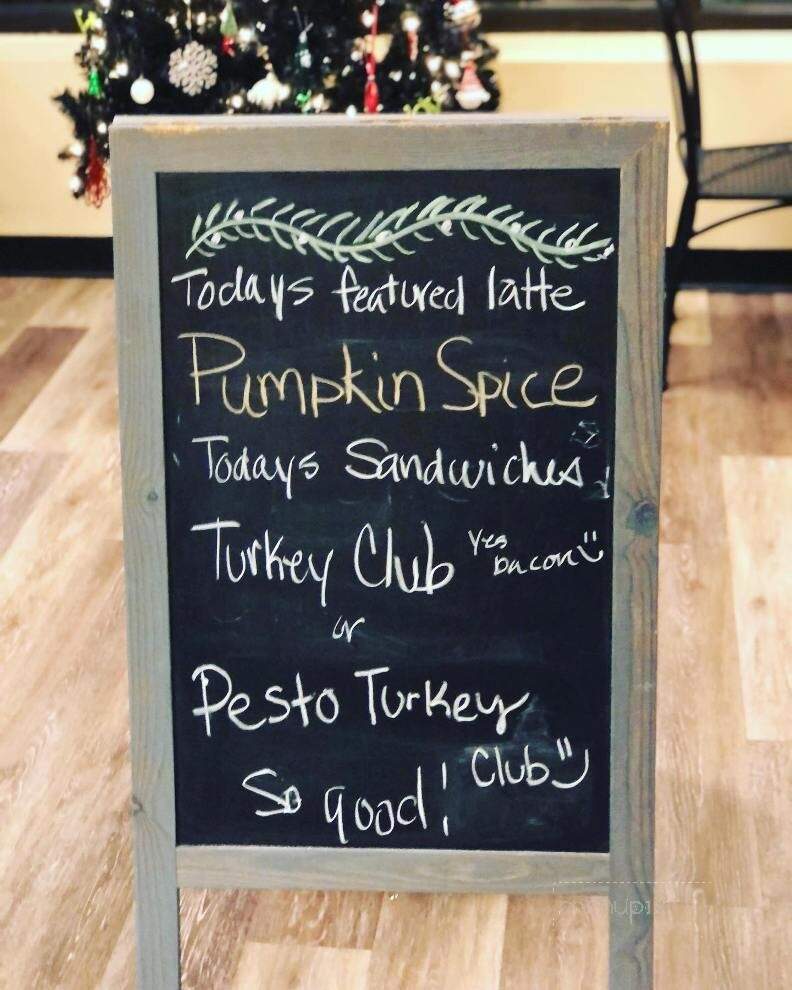 Todays featured latte
Pumpkin Spice
Todays Sandwiches
Turkey Club Yes bacon
or
Pesto Turkey
Club
So good!